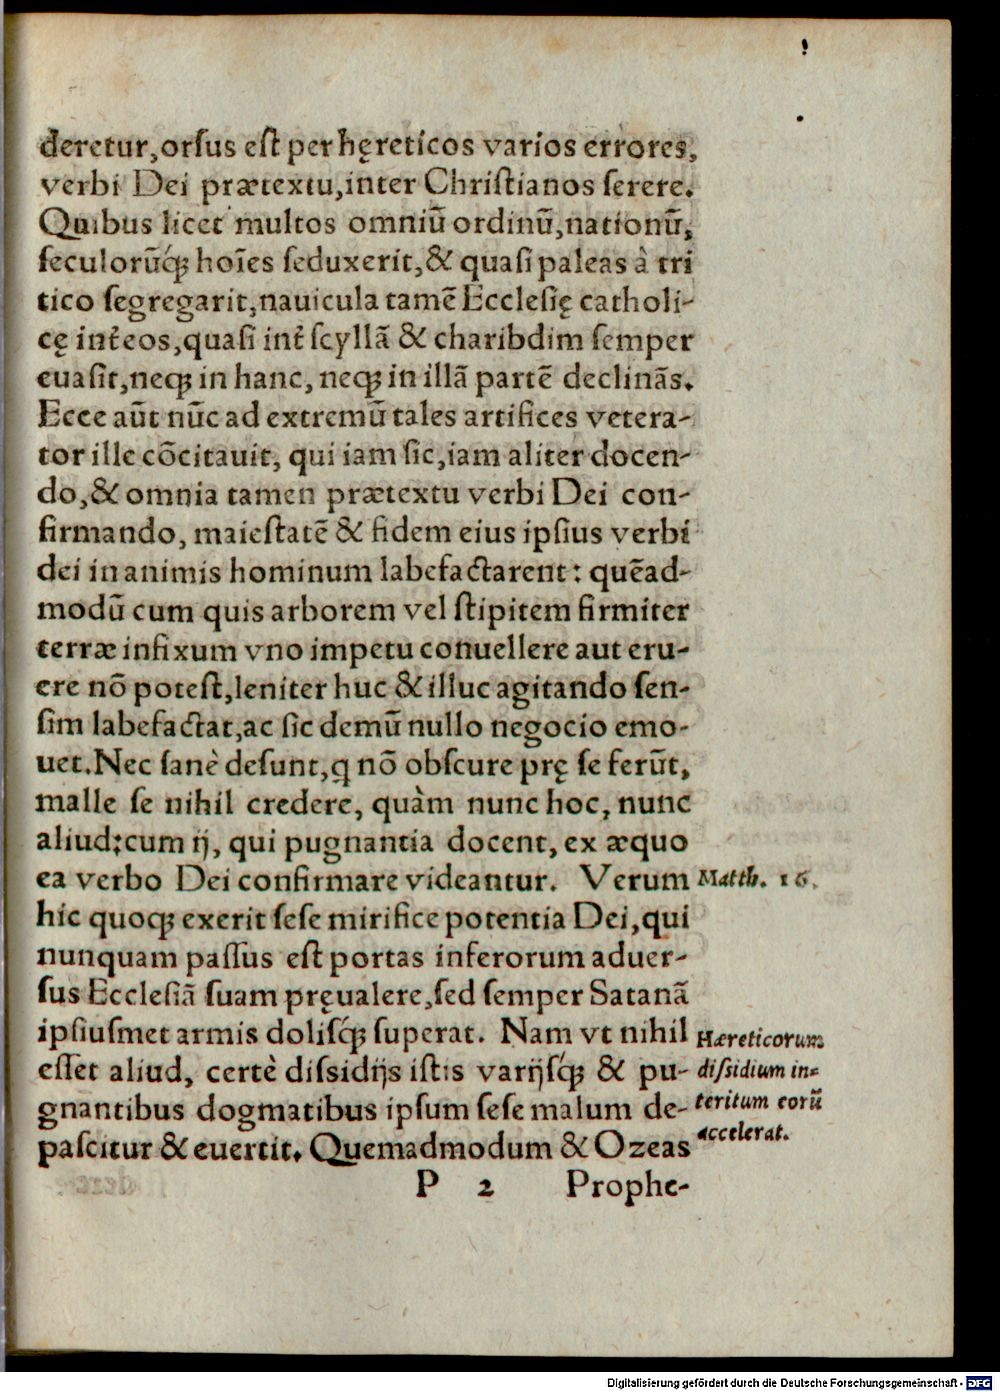 deretur,orſus eſt per hęreticos varios errores,
verbi Dei prætextu,inter Chriſtianos ſerere.
Quibus licet multos omniū ordinū,nationū,
ſeculorūq́ꝫ hoīes ſeduxerit,& quaſi paleas à tri
tico ſegregarit,nauicula tamē Eccleſię catholi-
cę inťeos,quaſi inť ſcyllā & charibdim ſemper
euaſit,neqꝫ in hanc, neqꝫ in illā partē declinās.
Ecce aūt nūc ad extremū tales artifices vetera-
tor ille cōcitauit, qui iam ſic,iam aliter docen-
do,& omnia tamen prætextu verbi Dei con-
firmando, maieſtatē & fidem eius ipſius verbi
dei in animis hominum labefactarent: quēad-
modū cum quis arborem vel ſtipitem firmiter
terræ infixum vno impetu conuellere aut eru-
ere nō poteſt,leniter huc & illuc agitando ſen-
ſim labefactat,ac ſic demū nullo negocio emo-
uet.Nec ſanè deſunt,q nō obſcure prę ſe ferūt,
malle ſe nihil credere, quàm nunc hoc, nunc
aliud;cum ij, qui pugnantia docent, ex æquo
ea verbo Dei confirmare videantur. Verum
Matth. 16.
hic quoqꝫ exerit ſeſe mirifice potentia Dei,qui
nunquam paſſus eſt portas inferorum aduer-
ſus Eccleſiā ſuam pręualere,ſed ſemper Satanā
ipſiuſmet armis doliſq́ꝫ ſuperat. Nam vt nihil
eſſet aliud, certè diſsidijs iſtis varijſq́ꝫ & pu-
gnantibus dogmatibus ipſum ſeſe malum de-
paſcitur & euertit. Quemadmodum & Ozeas
Hæreticorum
diſsidium in-
teritum eorū
accelerat.
P 2 Prophe-
Digitalisierung gefördert durch die Deutsche Forschungsgemeinschaft - DFG